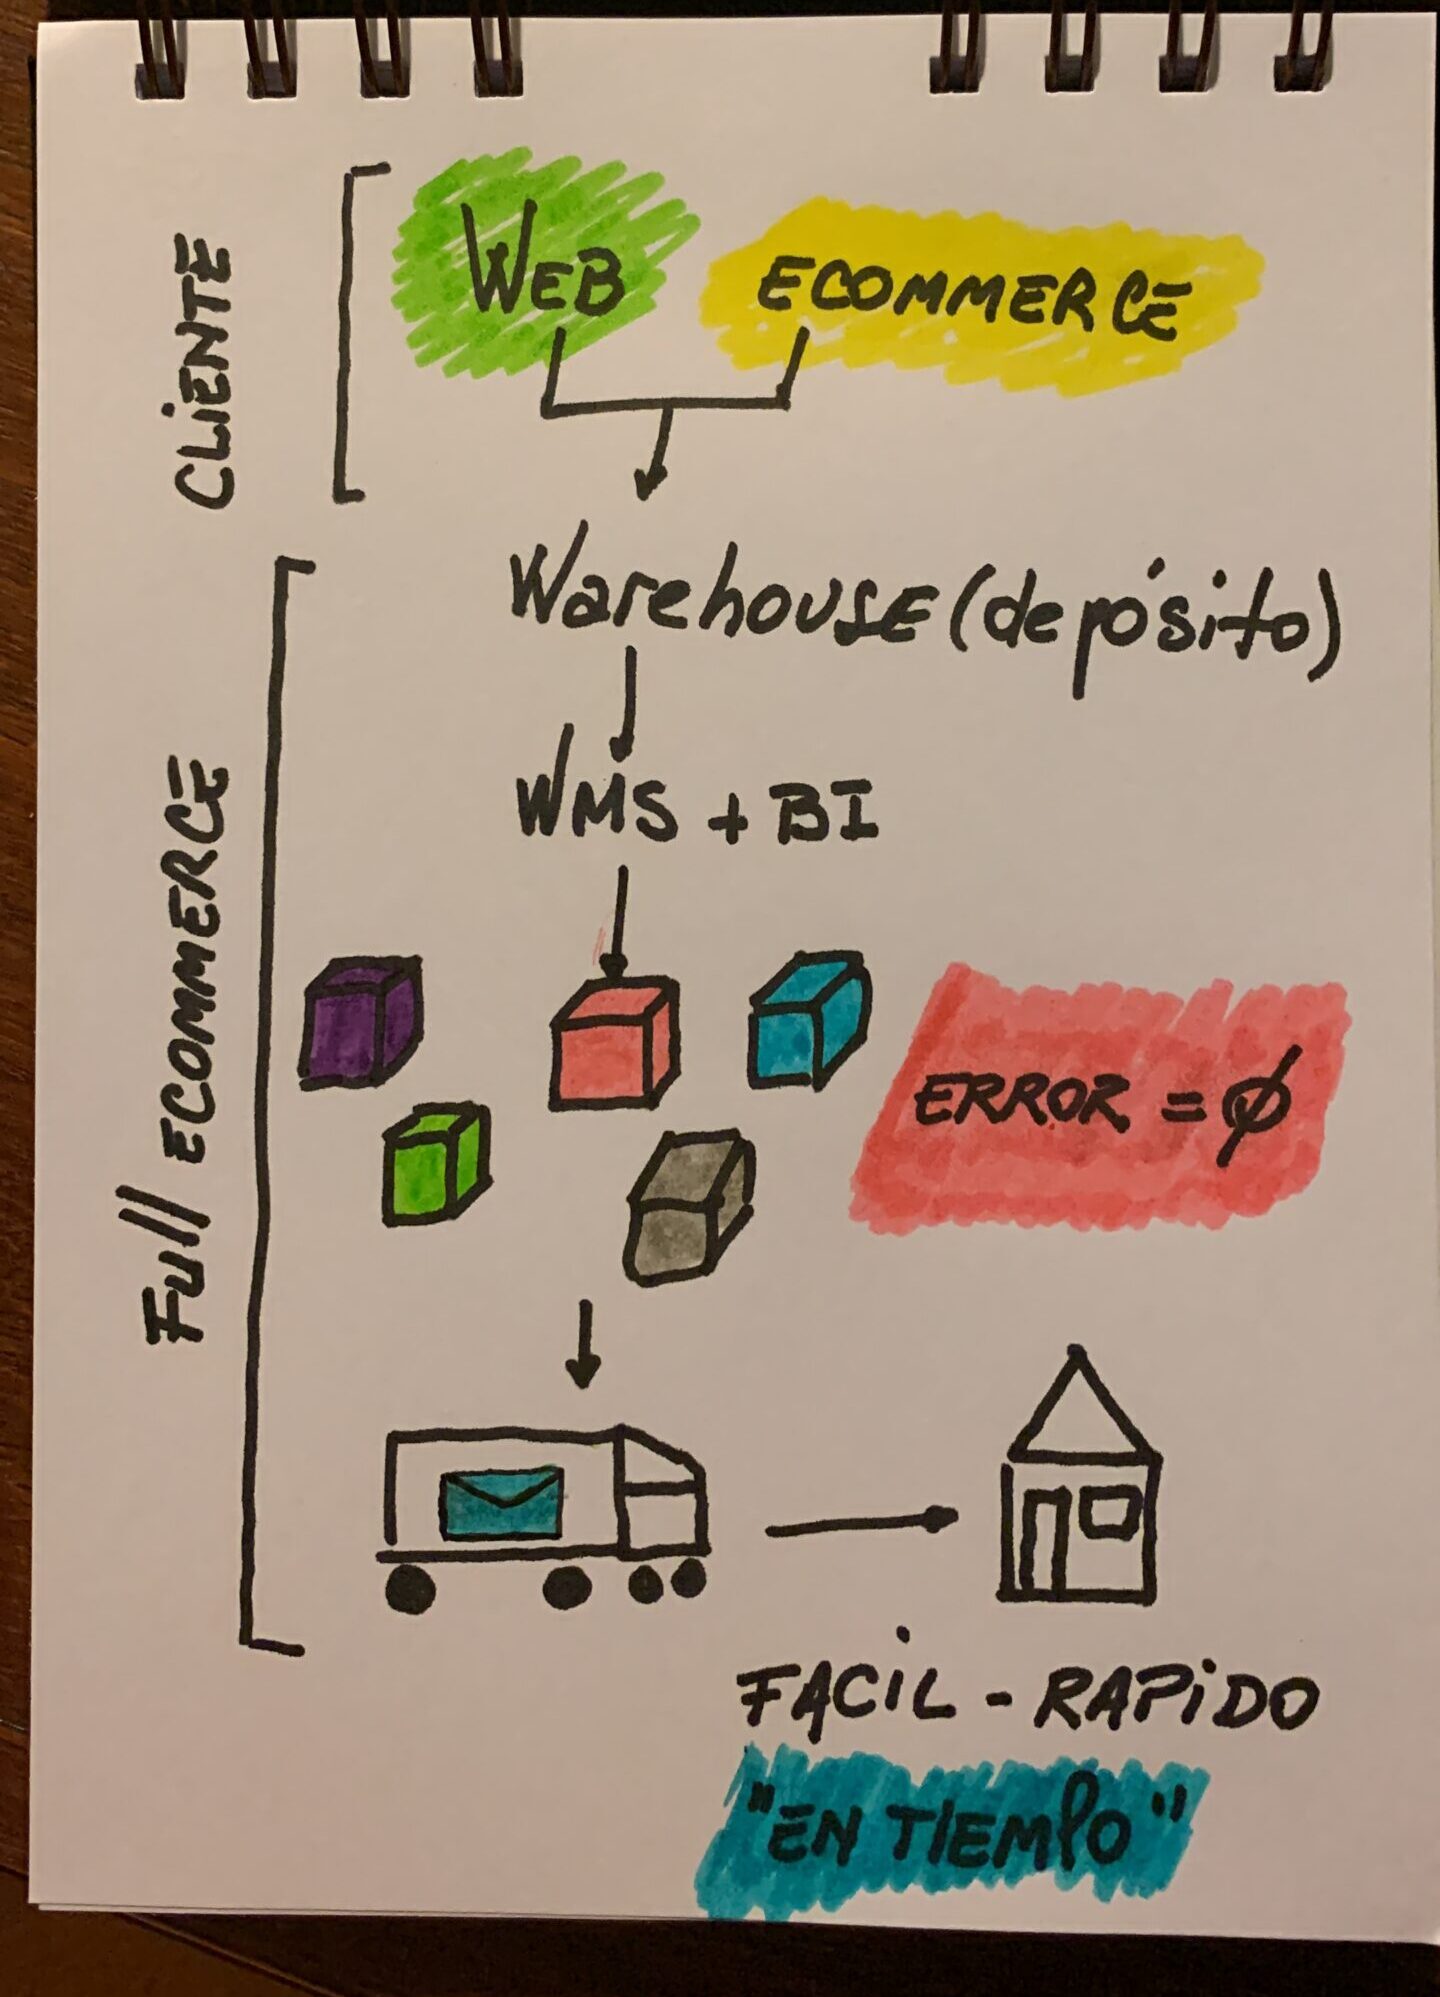 CLIENTE
WEB
ECOMMERCE
Warehouse (depósito)
WMS + BI
Full ECOMMERCE
ERROR = Ø
FACIL - RAPIDO
"EN TIEMPO"